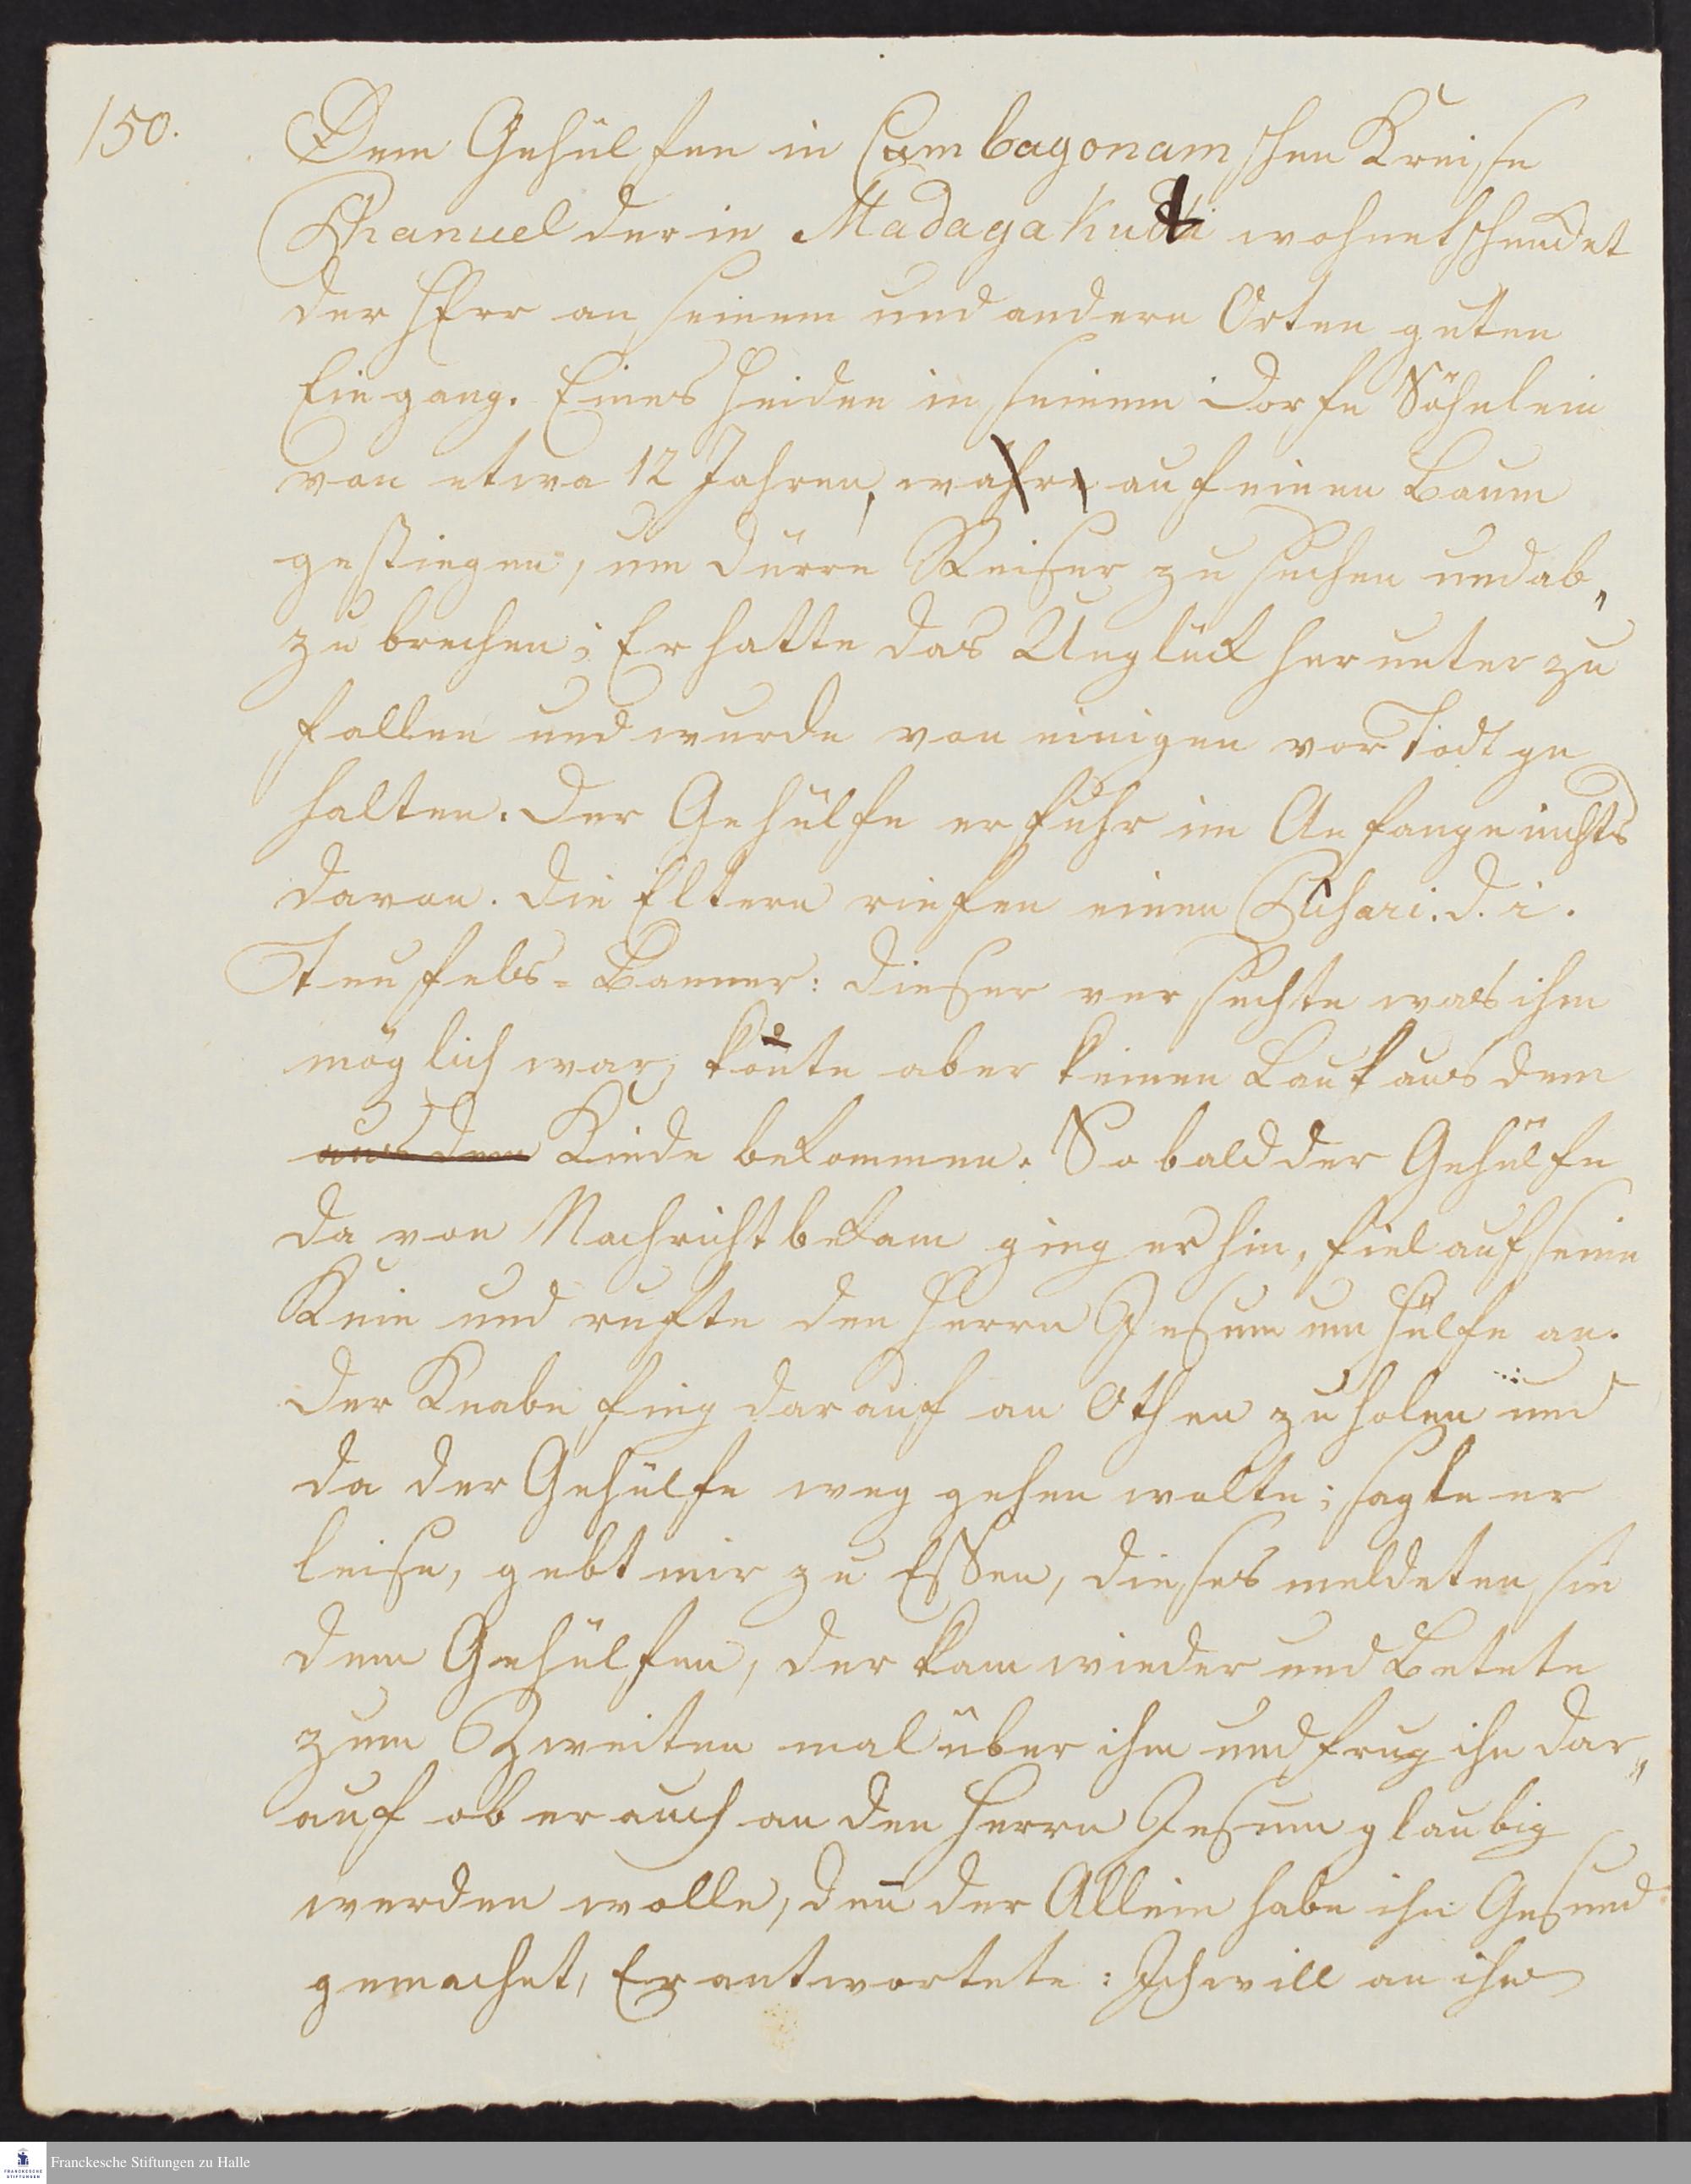 150.
Dem Gehülfen in Cumbagonam schen Kreise
Phanuel der in Madagakudti wohnet schencket
der HErr an seinem und andern Orten guten
Eingang. Eines Heiden in seinem Dorfe Söhnlein
von etwa 12 Jahren, wahre auf einen Baum
gestiegen, um dürre Reiser zu suchen und ab„
zu brechen; Er hatte das Unglück herunter zu
fallen und wurde von einigen vor Todt ge
halten. Der Gehülfe erfuhr im Anfange nichts
davon. Die Eltern riefen einen Puhari. d. i.
Teufels=Banner: Dieser versuchte was ihm
möglich war, konte aber keinen Laut aus dem
aus dem Kinde bekommen. So bald der Gehülfe
da von Nachricht bekam ging er hin, fiel auf seine
Knie und rufte den Herrn Jesum um Hülfe an.
Der Knabe fing darauf an Othen zu holen und
da der Gehülfe weg gehen wolte; sagte er
leise, gebt mir zu Essen, dieses meldeten sie
dem Gehülfen, der kam wieder und Betete
zum Zweiten mal über ihm und frug ihn dar„
auf ob er auch an den Herrn Jesum glaubig
werden wolle, deñ der Allein habe ihn Gesund
gemachet, Er antwortete: Ich will an ihn
Franckesche Stiftungen zu Halle
FRANCKESCHE
STIFTUNGEN